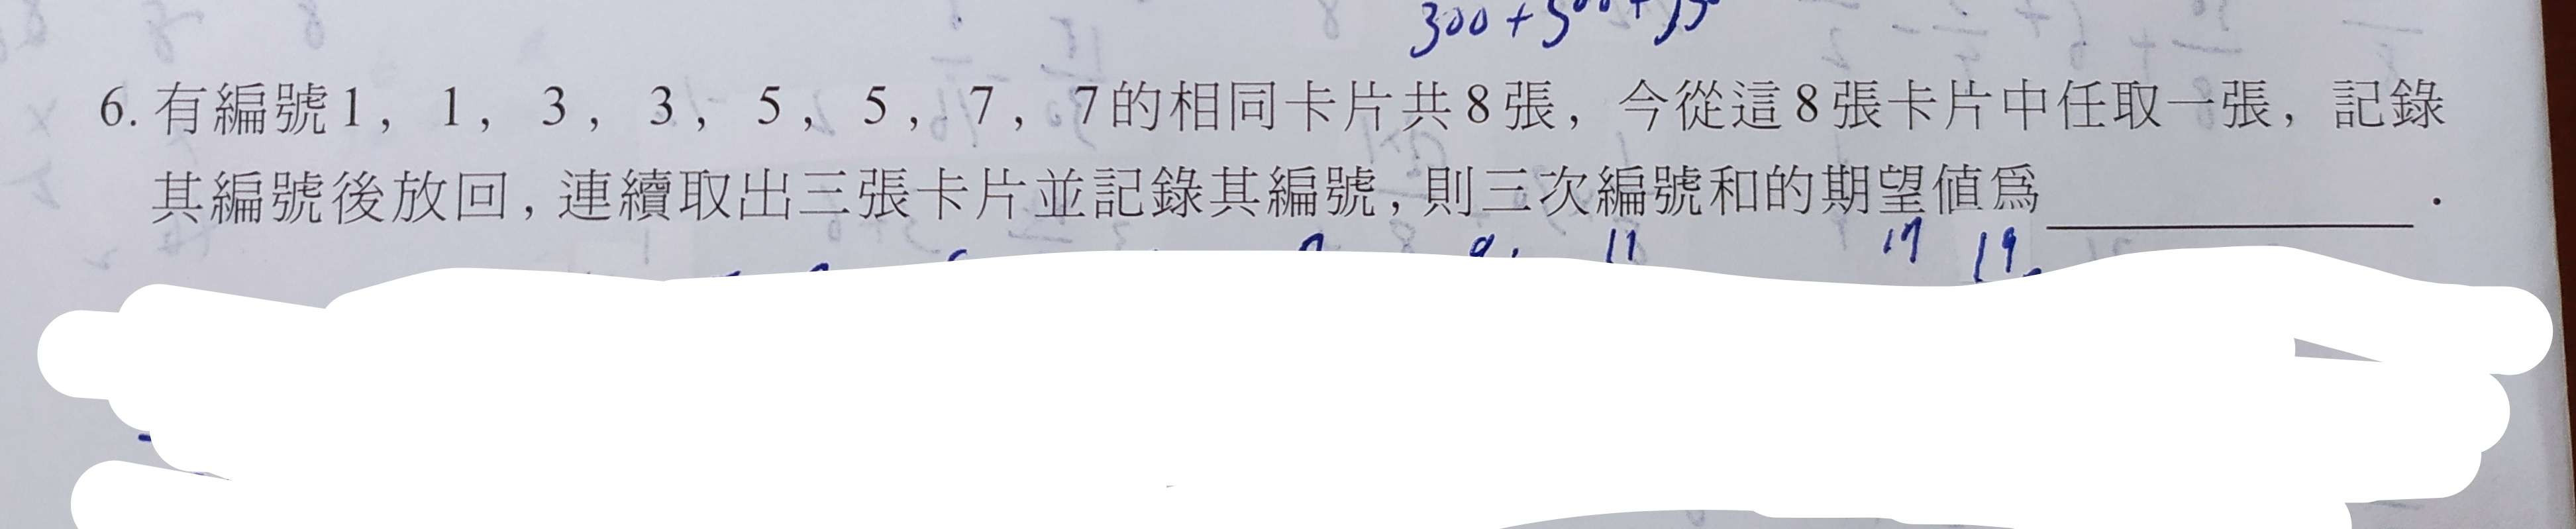 6. 有編號1，1，3，3，5，5，7，7的相同卡片共8張，今從這8張卡片中任取一張，記錄
其編號後放回，連續取出三張卡片並記錄其編號，則三次編號和的期望值為＿＿＿＿＿．
11 17 19